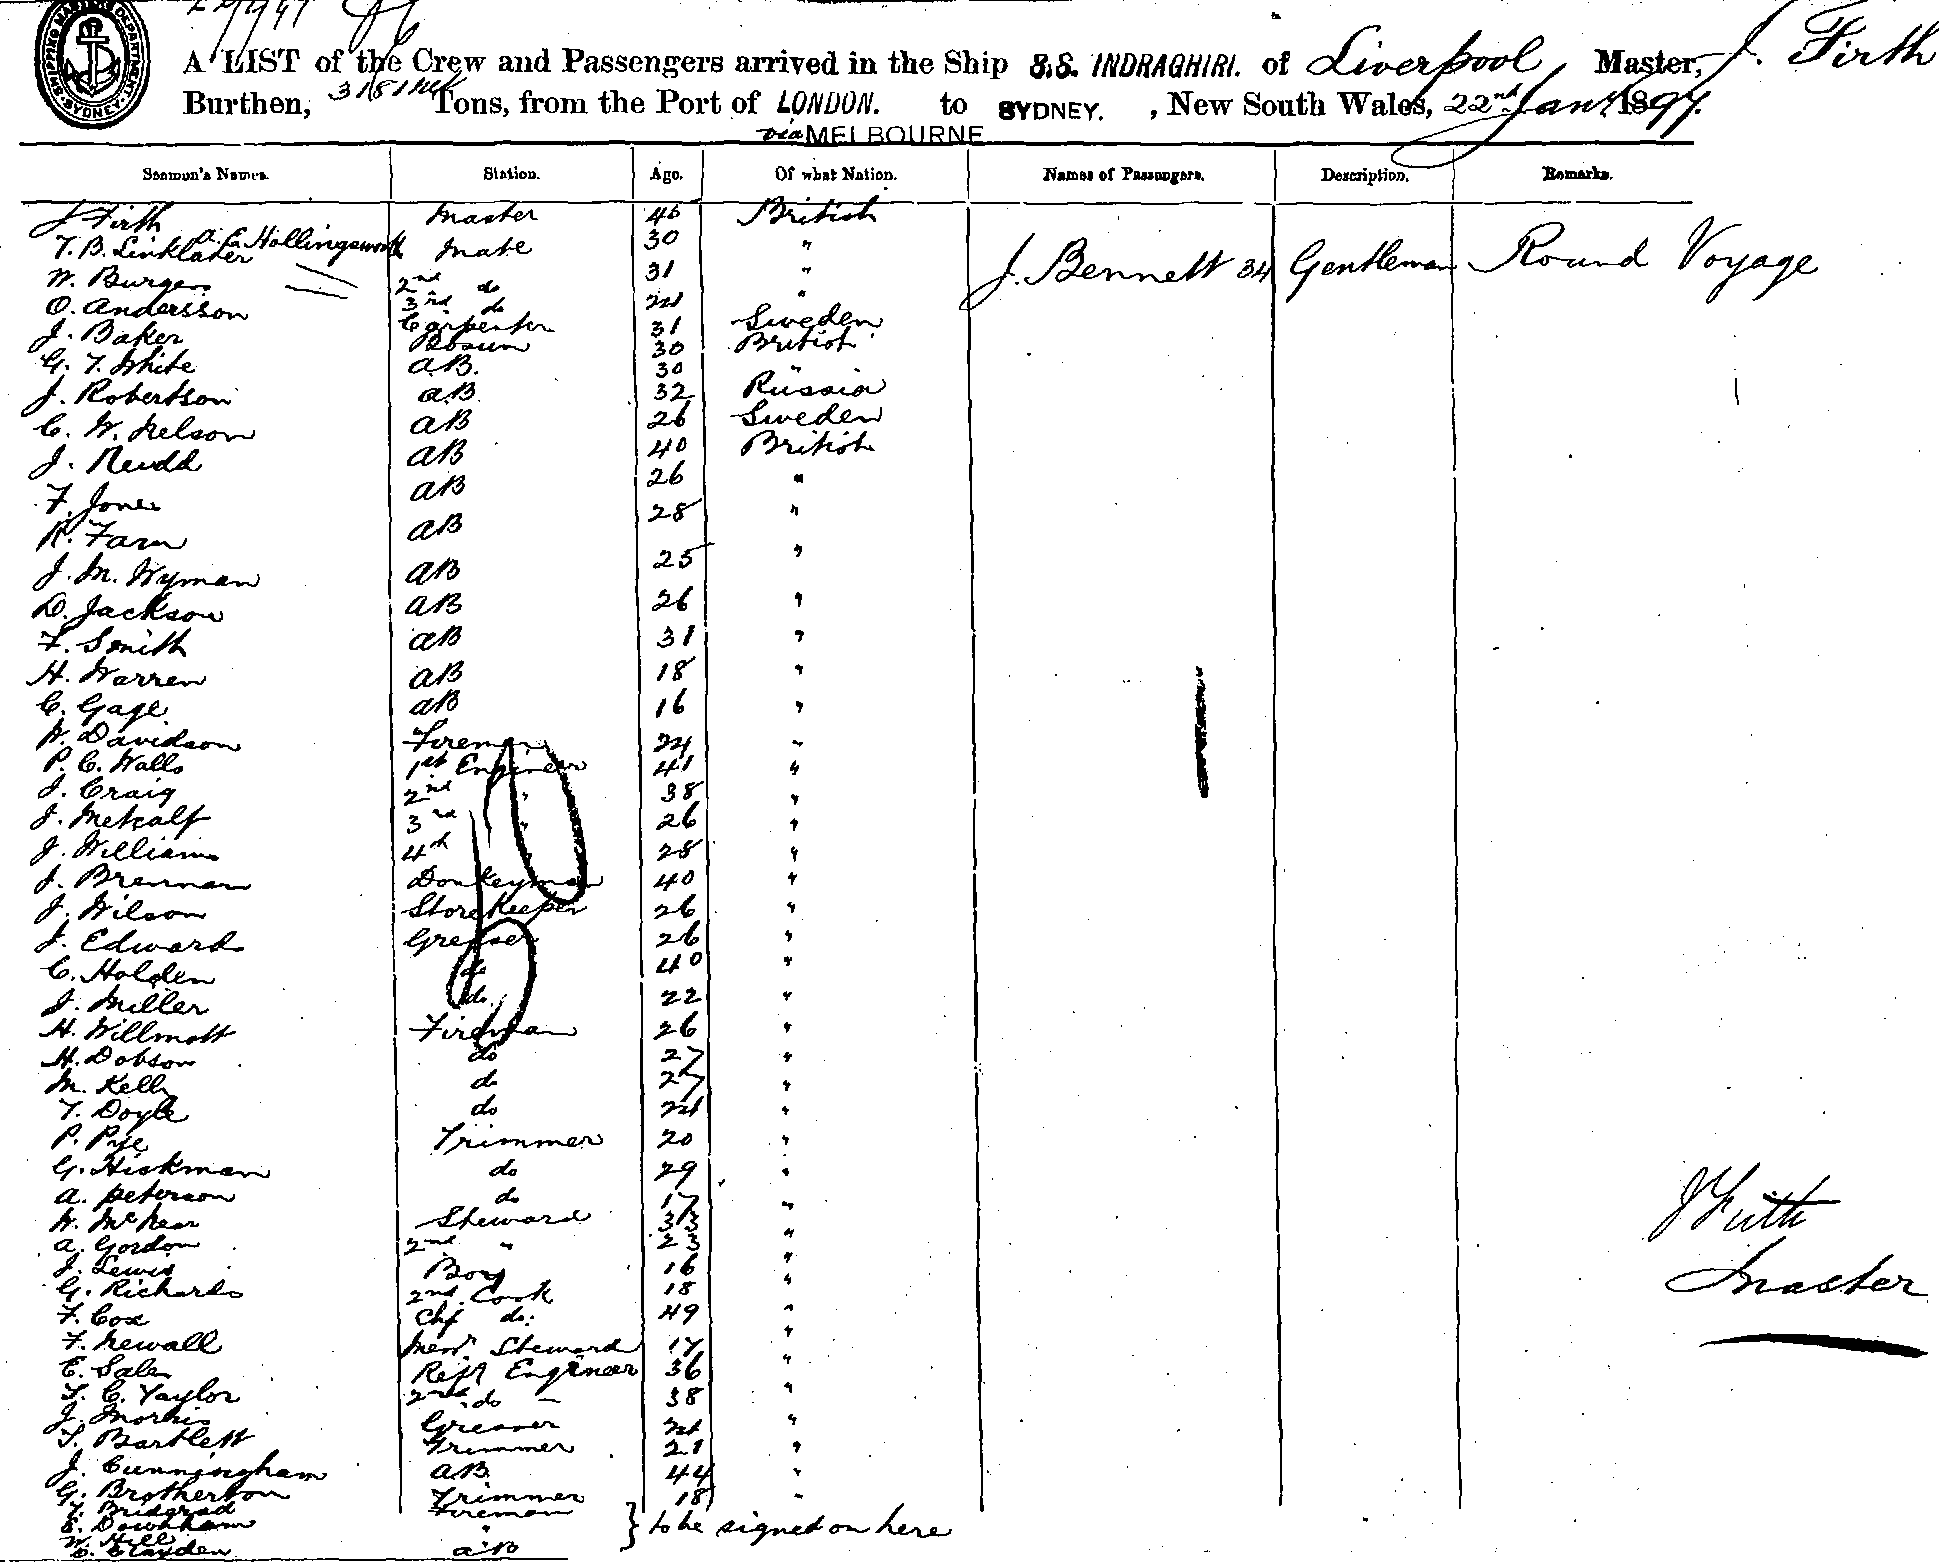 A LIST of the Crew and Passengers arrived in the Ship S.S. INDRAGHIRI. of Liverpool Master, J. Firth
Burthen, Tons, from the Port of LONDON. to SYDNEY. , New South Wales, 22nd Jany 1897.
via MELBOURNE
Seamen's Names. Station. Age. Of what Nation. Names of Passengers. Description. Remarks.
J Firth Master 46 British
T. B. Linklater A. E. Hollingsworth Mate 30 "
W. Burgess 2nd do 31 " J. Bennett 34 Gentleman Round Voyage
O. Andersson 3rd do 24 "
J. Baker Carpenter 31 Sweden
G. T. White Bosun 30 British
J. Robertson AB. 30 "
C. W. Nelson AB. 32 Russia
J. Rudd AB 26 Sweden
F. Jones AB 40 British
R. Farm AB 26 "
J. M. Wyman AB 28 "
D. Jackson AB 25 "
F. Smith AB 26 "
H. Warren AB 31 "
C. Gage AB 18 "
W. Davidson AB 16 "
P. C. Walls Fireman 24 "
J. Craig 1st Engineer 41 "
J. Metcalf 2nd " 38 "
J. Williams 3rd " 26 "
J. Brennan 4th " 28 "
J. Wilson Donkeyman 40 "
J. Edwards Storekeeper 26 "
C. Holden Greaser 26 "
J. Miller do 40 "
H. Willmott do. 22 "
H. Dobson Fireman 26 "
M. Kelly do 27 "
T. Doyle do 27 "
P. Pye do 24 "
G. Hickman Trimmer 20 "
A. Peterson do 29 "
W. McNear do 17 "
A. Gordon Steward 33 "
J. Lewis 2nd " 23 "
G. Richards Boy 16 "
F. Cox 2nd Cook 18 "
F. Newall Chf do: 49 "
E. Sales Mess. Steward 17 "
T. C. Taylor Refr Engineer 36 "
J. Morris 2nd do 38 "
T. Bartlett Greaser 24 "
J. Cunningham Trimmer 21 "
G. Brotherton AB. 44 "
Trimmer 18 "
E. Downham Fireman } to be signed on here
W. Hill "
C. Clayden AB
J Firth
Master